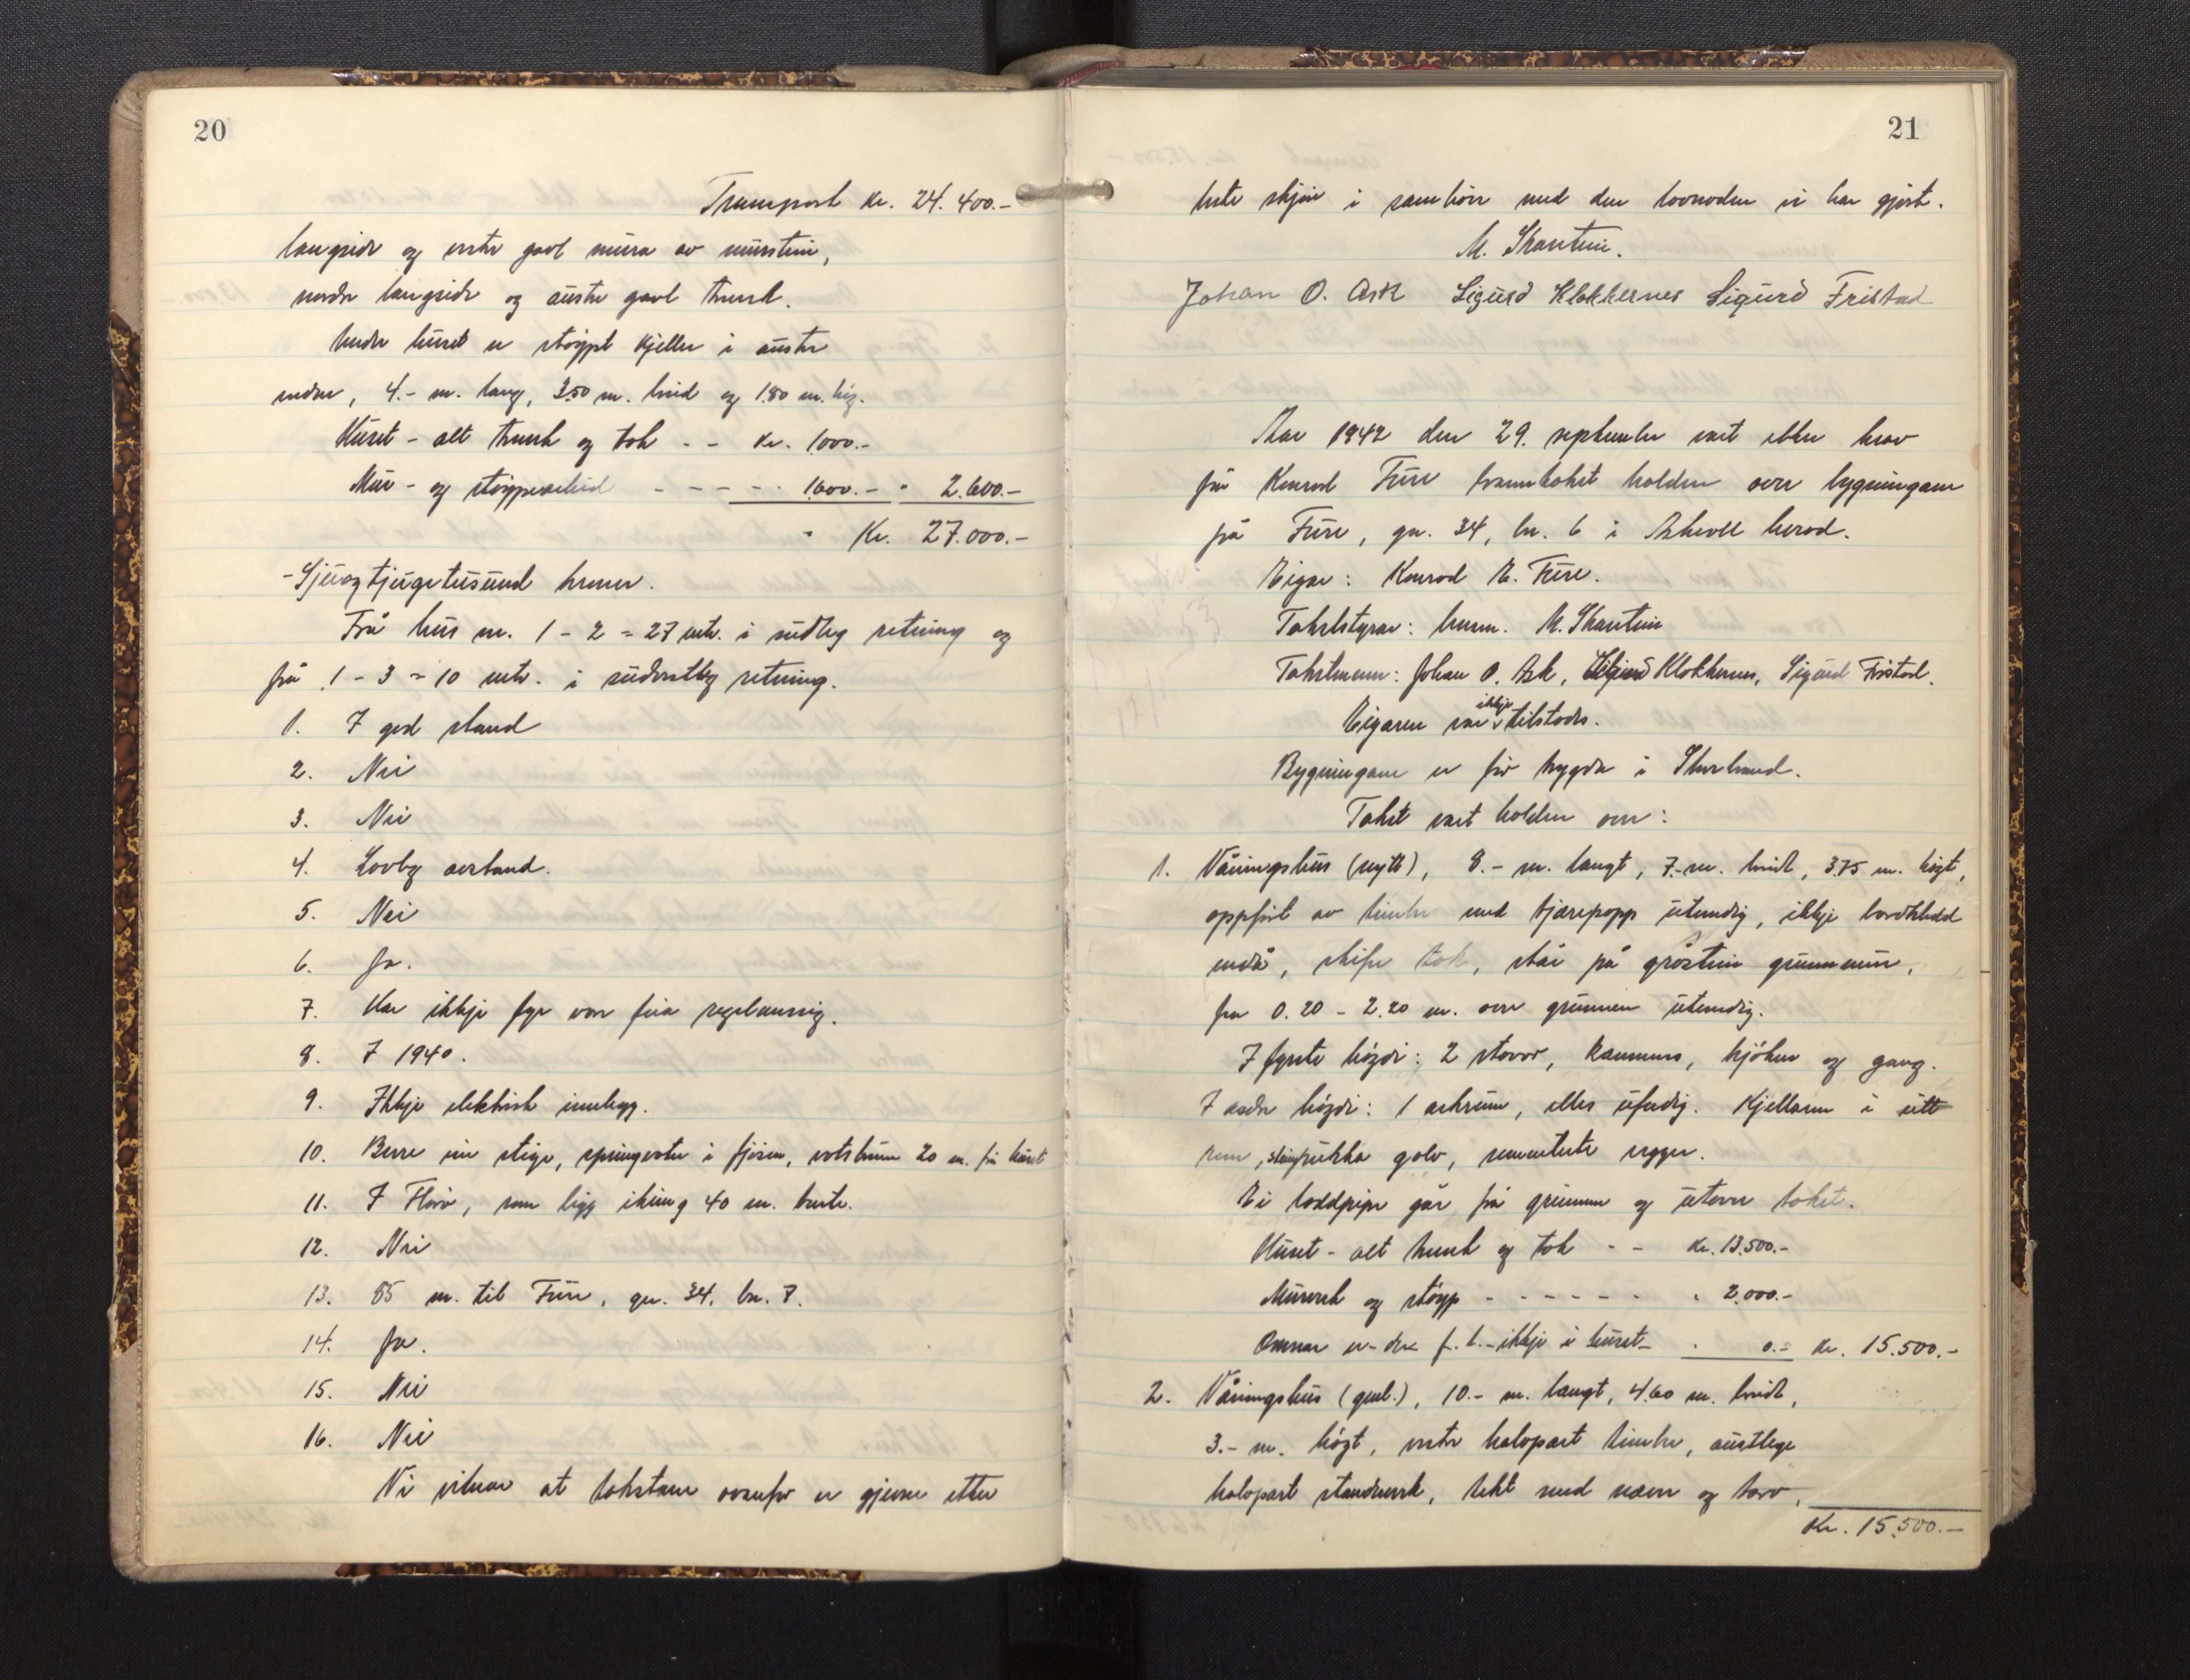 20
Transport kr. 24.400.-
langside og vestre gavl mura av murstein,
nordre langside og austre gavl trevirk.
Under huset er støypt kjeller i austre
enden, 4.- m. lang, 3.50 m. breid og 1.80 m. høg.
Huset - alt treverk og tak - - kr. 1000.-
Mur- og støypearbeid - - - - - 1.600.- " 2.600.-
" Kr. 27.000.-
- Sjuogtjugetusund kroner.
Frå hus nr. 1 - 2 = 27 mtr. i sudleg retning og
frå 1 - 3 = 10 mtr. i sudvestleg retning.
1. I god stand
2. Nei
3. Nei
4. Lovleg avstand.
5. Nei
6. Ja.
7. Har ikkje fyr von feia regelmessig.
8. I 1940.
9. Ikkje elektrisk innlegg.
10. Berre ein stige, springvatn i fjøsen, vatsbrunn 20 m. frå huset
11. I Florø, som ligg ikring 40 m. borte.
12. Nei
13. 85 m. til Fure, gn. 34, bn. 7.
14. Ja.
15. Nei
16. Nei
Vi vitnar at takstane ovanfor er gjevne etter
21
beste skjøn i samhøve med den lovnaden vi har gjort.
M. Skarstein.
Johan O. Ask Sigurd Klakkernes Sigurd Fristad
Aar 1942 den 29. september vart etter krav
frå Konrad Fure branntakst halden over bygningane
på Fure, gn. 34, bn. 6 i Askvoll herad.
Eigar: Konrad E. Fure.
Takststyrar: lensm. M. Skarstein
Takstmenn: Johan O. Ask, Sigurd Klakkernes, Sigurd Fristad.
Eigaren var ikkje tilstades.
Bygningane er før trygda i Storbrand.
Takst vart halden over:
1. Våningshus (nytt), 8.- m. langt, 7.- m. breidt, 3.75 m. høgt,
oppført av timbr med tjærepapp utvendig, ikkje bordkledd
enda, skifer tak, står på gråstein grunnmur,
fra 0.20 - 2.20 m. over grunnen utvendig.
I fyrste høgdi: 2 stovor, kammers, kjøken og gang.
I andre høgdi: 1 arkrum, elles uferdig. Kjellaren i eitt
rum, steinpukka golv, sementerte vegger.
Ei loddpipe går frå grunnen og utover taket.
Huset - alt treverk og tak - - kr. 13.500.-
Murverk og støyp - - - - - - " 2.000.-
Omnar er - det f. t. - ikkje i huset - " 0.- kr. 15.500.-
2. Våningshus (gml.), 10.- m. langt, 4.60 m. breidt,
3.- m. høgt, vestre halvpart timbr, austlege
halvpart standverk, tekt med næver og torv,
Kr. 15.500.-